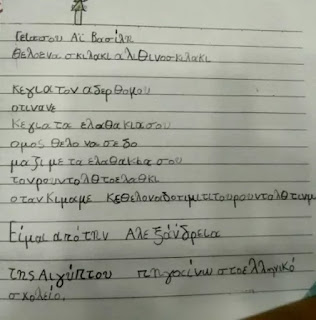 Γειασου Αϊ Βασιλη
θελοενα σκιλακι αλιθινοσκιλακι
κεγιατον αδερθομου
οτινανε
κεγιατα ελαθακιασου
ομος θελο να σε δο
μαζι με τα ελαθακια σου
τονρουντολθτοελαθκι
οταν κιμαμε
Είμαι από την Αλεξάνδρεια
της Αιγύπτου πηγαίνω στο ελληνικό
σχολείο.